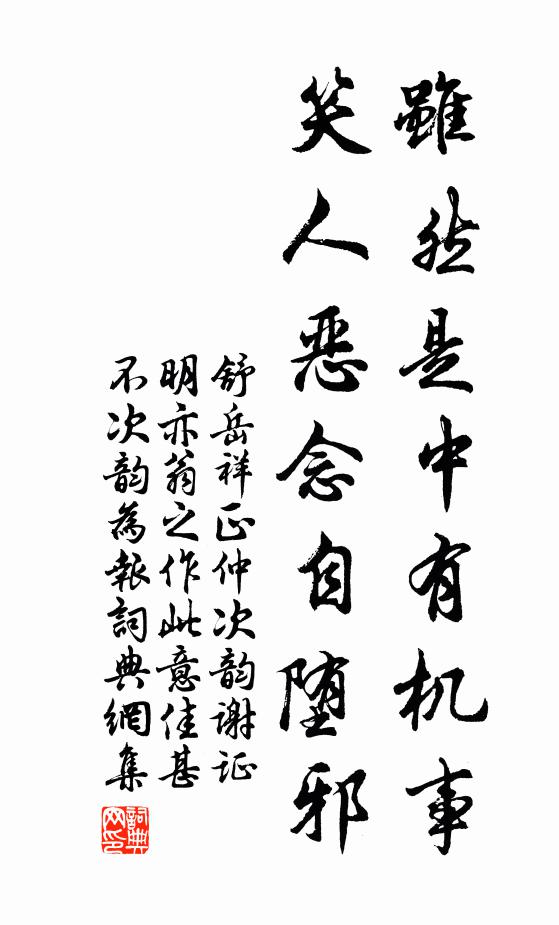 雖然是中有机事
笑人恶念自堕邪
舒岳祥正仲次韵谢证
明亦翁之作此意佳甚
不次韵為報詞典網集
詞典
网印